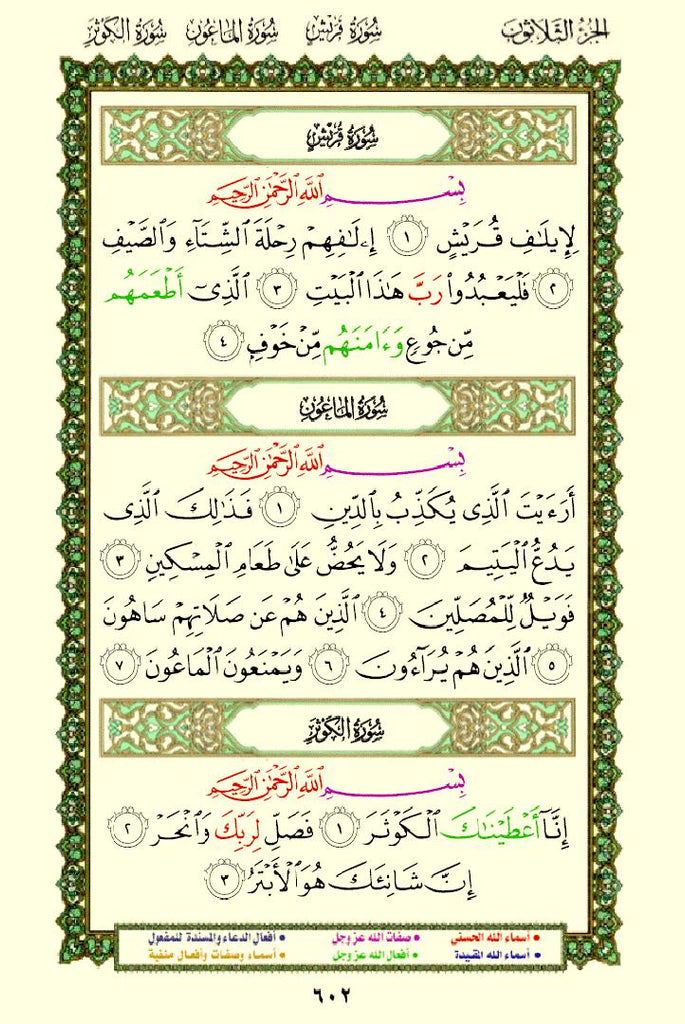 الجزء الثلاثون سورة قريش سورة الماعون سورة الكوثر
سورة قريش
بِسْمِ ٱللَّهِ ٱلرَّحْمَٰنِ ٱلرَّحِيمِ
لِإِيلَٰفِ قُرَيْشٍ ١ إِۦلَٰفِهِمْ رِحْلَةَ ٱلشِّتَآءِ وَٱلصَّيْفِ
٢ فَلْيَعْبُدُوا۟ رَبَّ هَٰذَا ٱلْبَيْتِ ٣ ٱلَّذِىٓ أَطْعَمَهُم
مِّن جُوعٍ وَءَامَنَهُم مِّنْ خَوْفٍۭ ٤
سورة الماعون
بِسْمِ ٱللَّهِ ٱلرَّحْمَٰنِ ٱلرَّحِيمِ
أَرَءَيْتَ ٱلَّذِى يُكَذِّبُ بِٱلدِّينِ ١ فَذَٰلِكَ ٱلَّذِى
يَدُعُّ ٱلْيَتِيمَ ٢ وَلَا يَحُضُّ عَلَىٰ طَعَامِ ٱلْمِسْكِينِ ٣
فَوَيْلٌ لِّلْمُصَلِّينَ ٤ ٱلَّذِينَ هُمْ عَن صَلَاتِهِمْ سَاهُونَ
٥ ٱلَّذِينَ هُمْ يُرَآءُونَ ٦ وَيَمْنَعُونَ ٱلْمَاعُونَ ٧
سورة الكوثر
بِسْمِ ٱللَّهِ ٱلرَّحْمَٰنِ ٱلرَّحِيمِ
إِنَّآ أَعْطَيْنَٰكَ ٱلْكَوْثَرَ ١ فَصَلِّ لِرَبِّكَ وَٱنْحَرْ ٢
إِنَّ شَانِئَكَ هُوَ ٱلْأَبْتَرُ ٣
• أسماء الله الحسنى • صفات الله عز وجل • أفعال الدعاء والمسندة للمفعول
• أسماء الله المقيدة • أفعال الله عز وجل • أسماء وصفات وأفعال منفية
٦٠٢